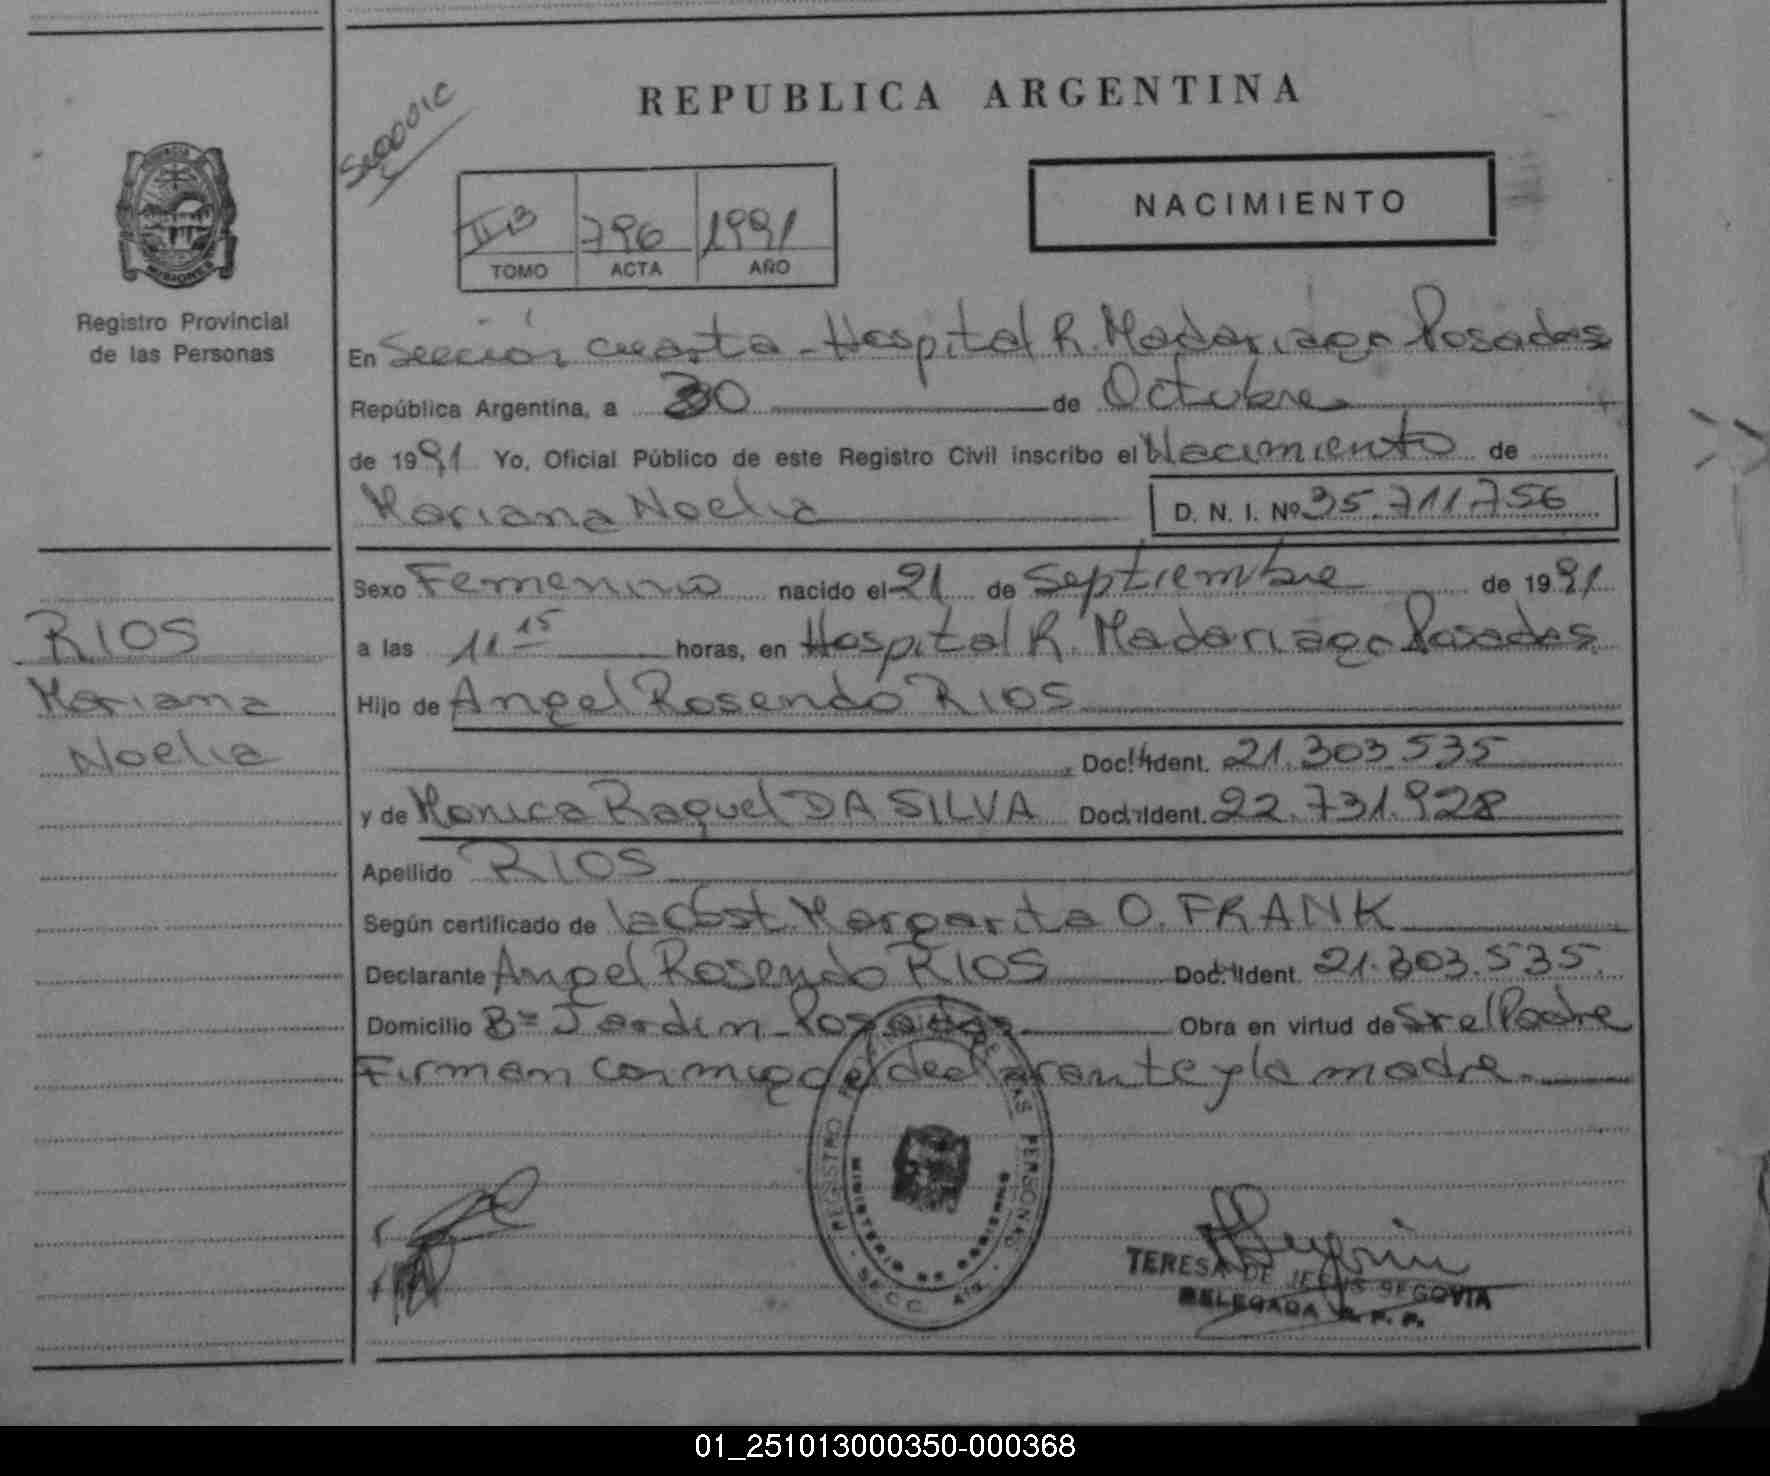 REPUBLICA ARGENTINA
NACIMIENTO
II B 796 1991
TOMO ACTA AÑO
PROVINCIA
MISIONES
Registro Provincial
de las Personas
En Sección cuarta - Hospital R. Madariaga Posadas
República Argentina, a 30 de Octubre
de 1991 Yo, Oficial Público de este Registro Civil inscribo el Nacimiento de
Mariana Noelia D. N. I. Nº 35.711.756
Sexo Femenino nacido el 21 de Septiembre de 1991
RIOS
Mariana
Noelia
a las 11 15 horas, en Hospital R. Madariaga Posadas
Hijo de Angel Rosendo RIOS
Doc. Ident. 21.303.535
y de Monica Raquel DA SILVA Doc. Ident. 22.731.928
Apellido RIOS
Según certificado de la Obst. Margarita O. FRANK
Declarante Angel Rosendo RIOS Doc. Ident. 21.303.535.
Domicilio Bº Jardin - Posadas Obra en virtud de Sr el Padre
Firman conmigo el declarante y la madre.
REGISTRO PROVINCIAL DE LAS PERSONAS
MINISTERIO DE GOBIERNO
SECC. 4ta.
TERESA DE JESUS SEGOVIA
DELEGADA R. P. P.
01_251013000350-000368